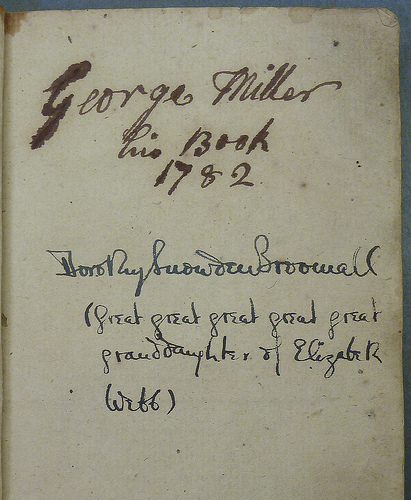 George Miller
his Book
1782
Dorothy Snowden Broomall
(Great great great great great
granddaughter of Elizabeth
Webb)